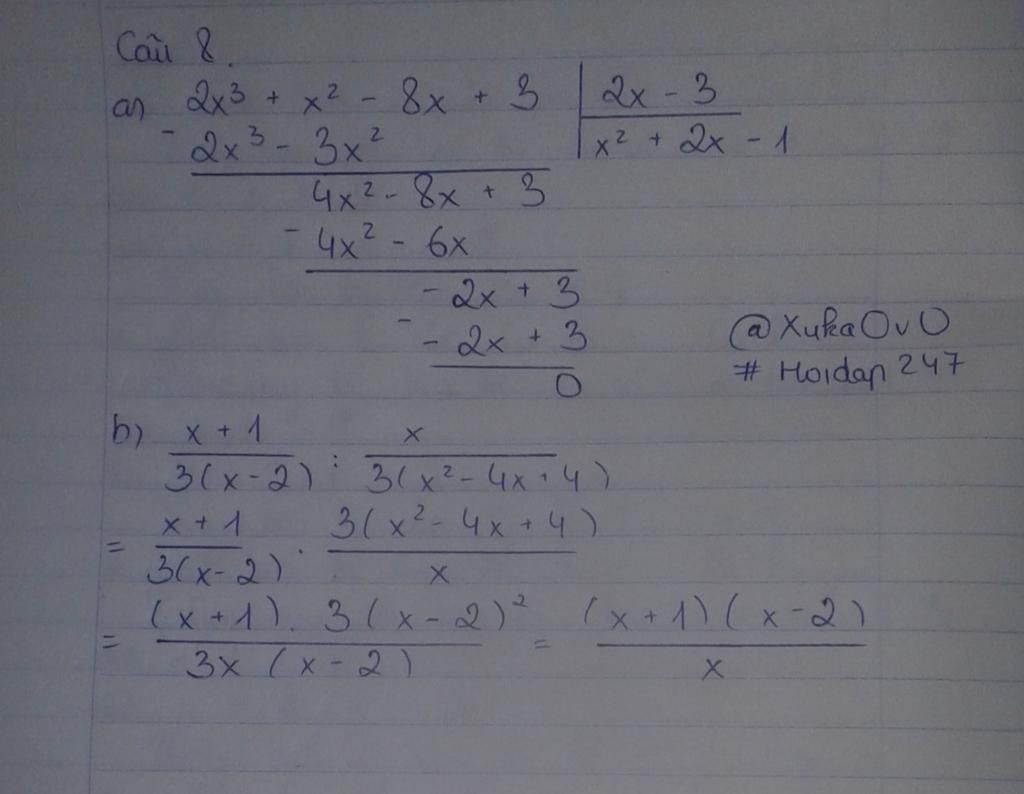 Câu 8.
a) 2x³ + x² - 8x + 3 | 2x - 3
- 2x³ - 3x² | x² + 2x - 1
4x² - 8x + 3
- 4x² - 6x
- 2x + 3
- - 2x + 3
0
@XukaOvO
# Hoidap247
b) (x + 1)/(3(x - 2)) : x/(3(x² - 4x + 4))
= (x + 1)/(3(x - 2)) . (3(x² - 4x + 4))/x
= ((x + 1). 3(x - 2)²)/(3x (x - 2)) = ((x + 1)(x - 2))/x